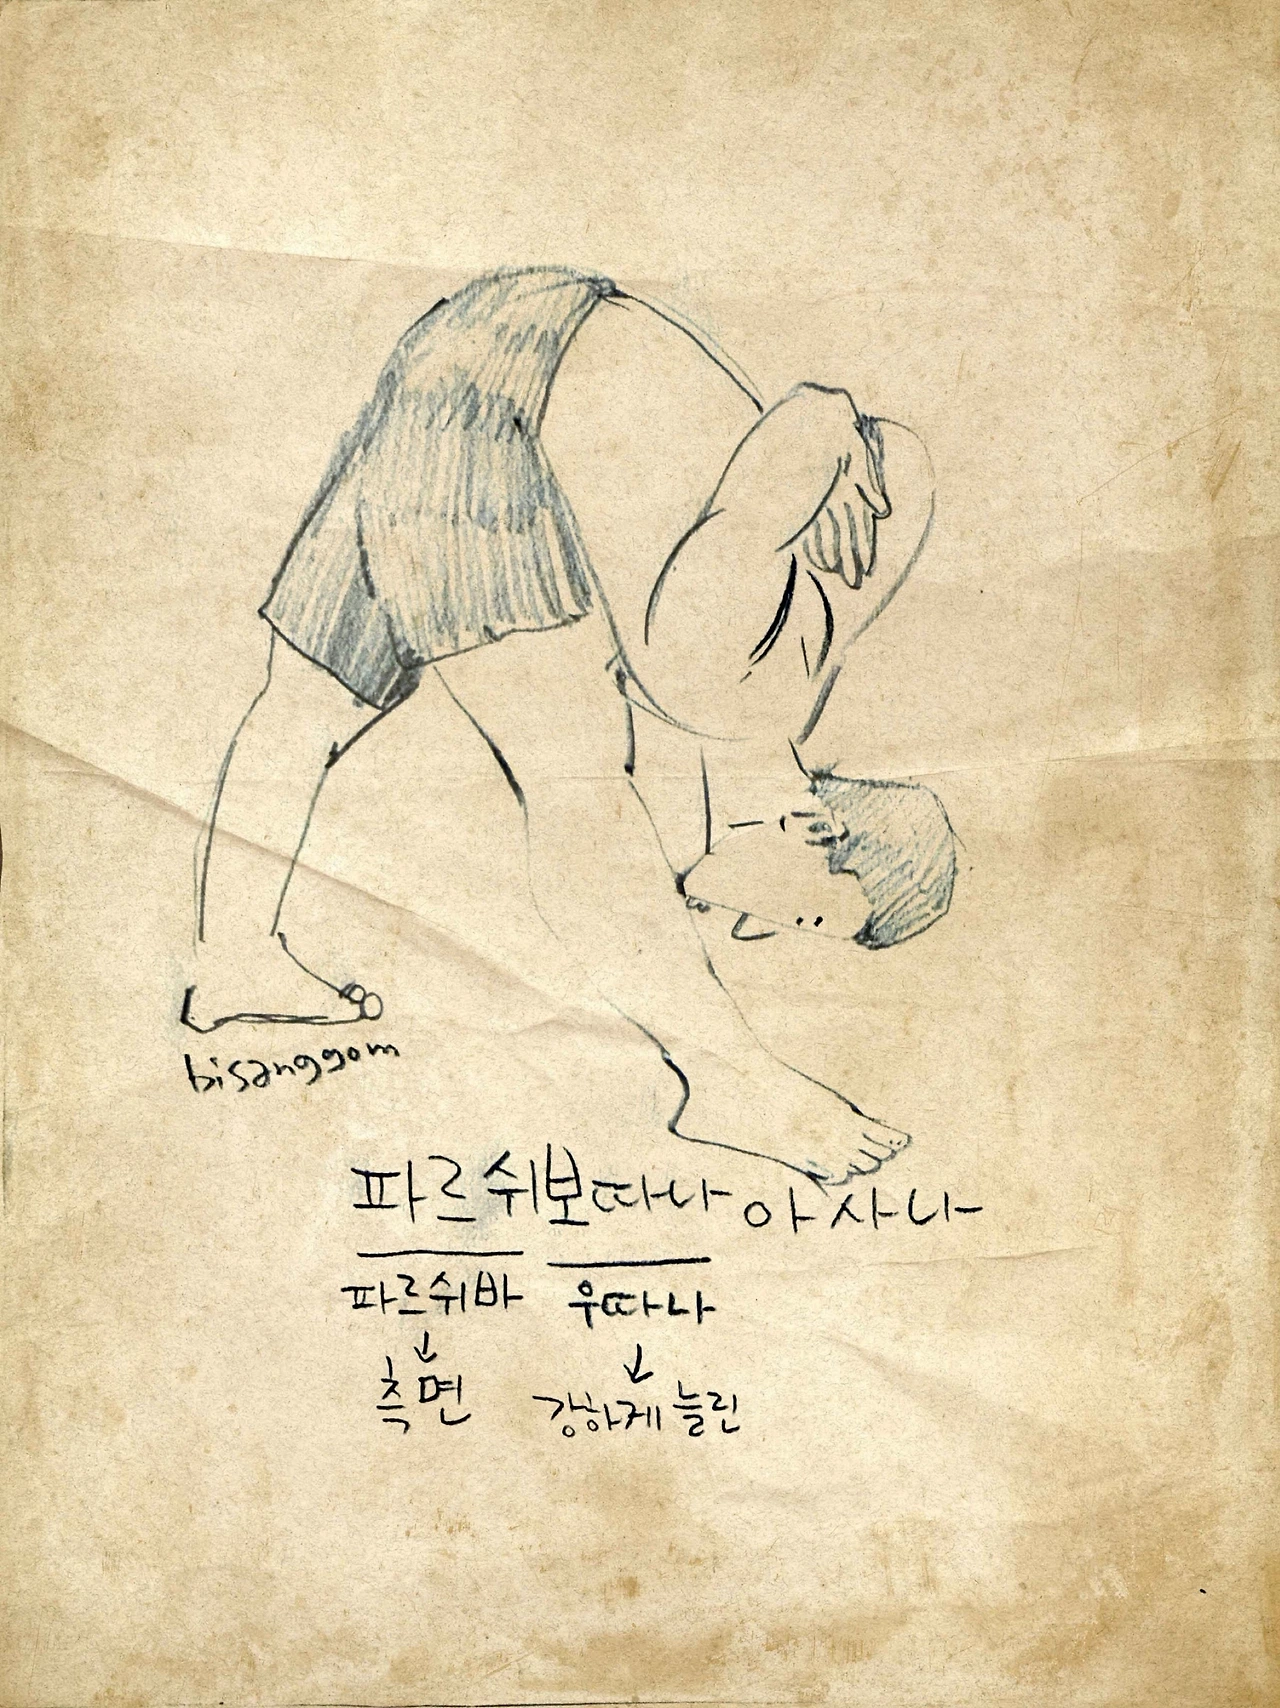 bisanggom
파르쉬보따나 아사나
파르쉬바 우따나
↓ ↓
측면 강하게 늘린